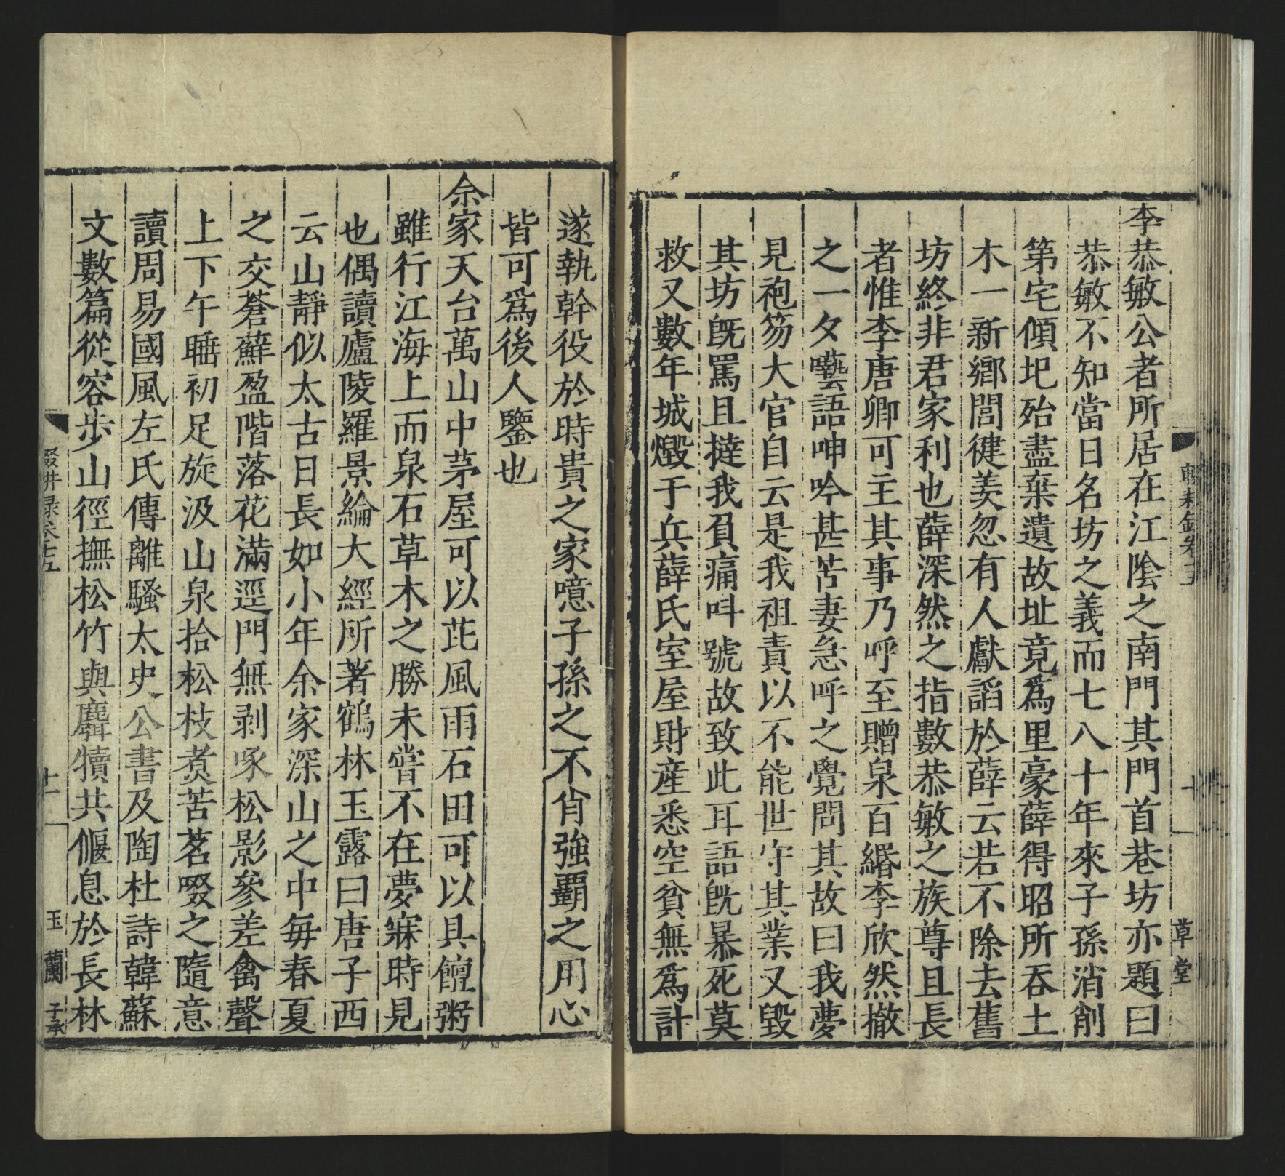 李恭敏公者所居在江陰之南門其門首巷坊亦題曰
恭敏不知當日名坊之義而七八十年來子孫消削
第宅傾圯殆盡棄遺故址竟爲里豪薛得昭所吞土
木一新鄉閭健羨忽有人獻謟於薛云若不除去舊
坊終非君家利也薛深然之指數恭敏之族尊且長
者惟李唐卿可主其事乃呼至贈泉百緡李欣然撤
之一夕囈語呻吟甚苦妻急呼之覺問其故曰我夢
見袍笏大官自云是我祖責以不能世守其業又毀
其坊旣罵且撻我負痛呌號故致此耳語旣暴死莫
救又數年城燬于兵薛氏室屋財產悉空貧無爲計
草堂
遂執幹役於時貴之家噫子孫之不肖強覇之用心
皆可爲後人鑒也
余家天台萬山中茅屋可以芘風雨石田可以具饘粥
雖行江海上而泉石草木之勝未嘗不在夢寐時見
也偶讀廬陵羅景綸大經所著鶴林玉露曰唐子西
云山靜似太古日長如小年余家深山之中毎春夏
之交蒼蘚盈階落花滿逕門無剥啄松影參差禽聲
上下午睡初足旋汲山泉拾松枝煮苦茗啜之隨意
讀周易國風左氏傳離騷太史公書及陶杜詩韓蘇
文數篇從容步山徑撫松竹與麛犢共偃息於長林
十一
玉蘭